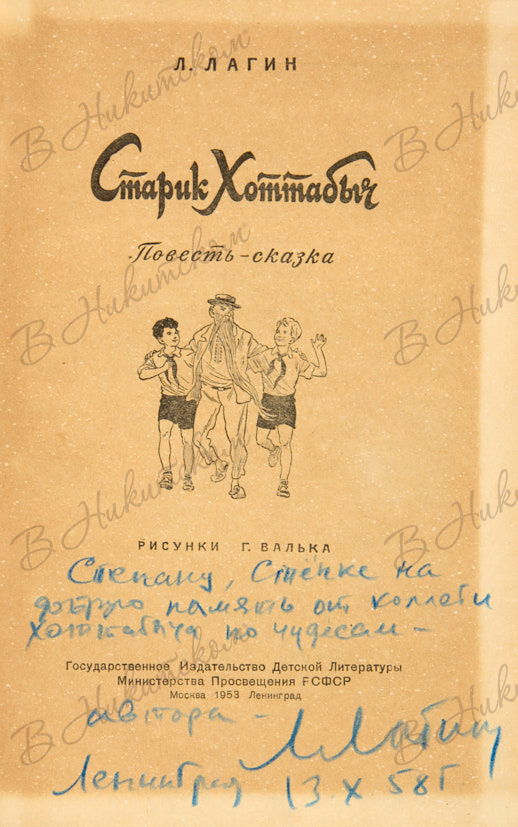 Л. ЛАГИН
Старик Хоттабыч
Повесть-сказка
РИСУНКИ Г. ВАЛЬКА
Степану, Стёпке на
добрую память от коллеги
Хоттабыча по чудесам –
Государственное Издательство Детской Литературы
Министерства Просвещения РСФСР
Москва 1953 Ленинград
автора –
Л Лагин
Ленинград 13 X 58 г
В Никитском
В Никитском
В Никитском
В Никитском
В Никитском
В Никитском
В Никитском
В Никитском